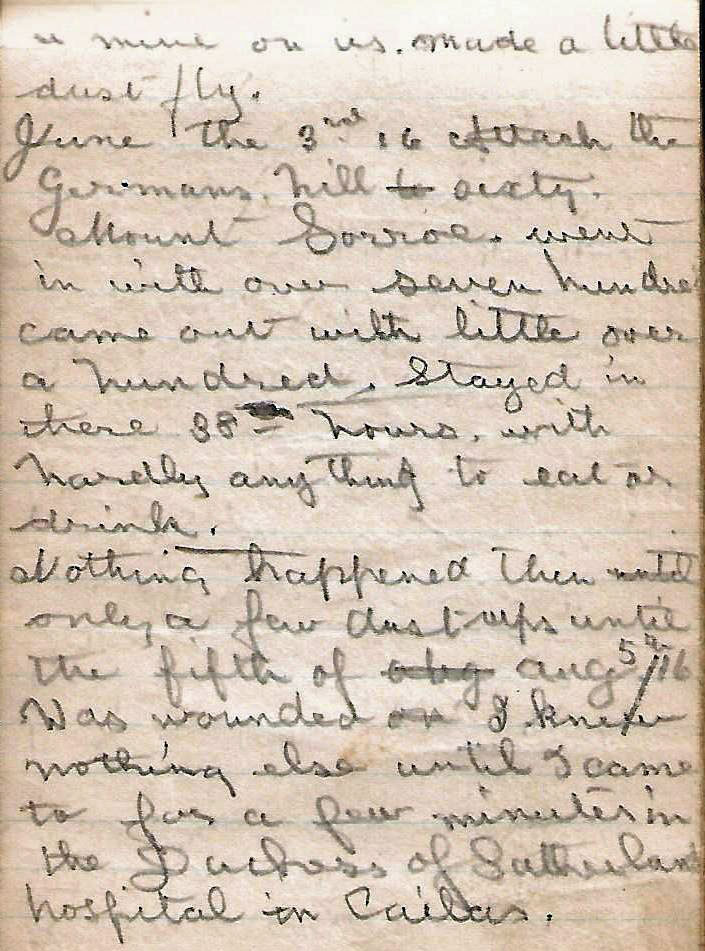 a mine on us. made a little
dust fly.
June the 3rd 16 Attack the
Germans. hill to sixty.
Mount Sorroe. went
in with over seven hundre
came out with little over
a hundred. Stayed in
there 38 hours. with
hardly anything to eat or
drink.
Nothing happened then until
only a few dust-ups until
the fifth of aug aug 5th/16
Was wounded or I knew
nothing else until I came
to for a few minutes in
the Duchess of Sutherland
hospital in